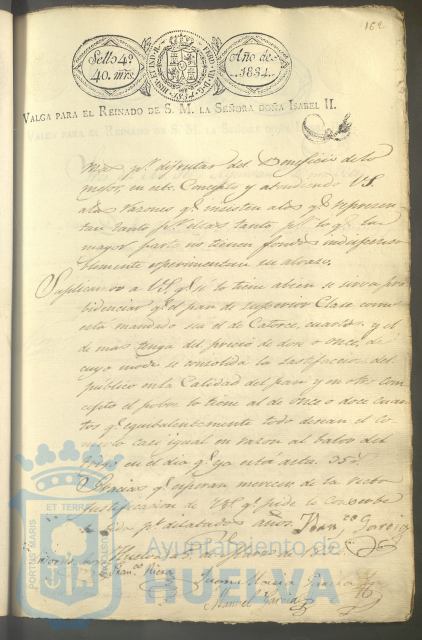 162
Sello 4º
40. mrs.
Año de
1834.
VALGA PARA EL REINADO DE S. M. LA SEÑORA DOÑA ISABEL II.
mas pª disfrutar del Beneficio de lo
mejor, en este Concepto y atendiendo V.S.
alas razones qe insisten alos qe represen
tan tanto pr
mayor parte no tienen fondos indispensa
blemente esperimentan su atraso.
Suplican a V.S. qe si lo tiene abien se sirva pro
bidenciar qe el pan de superior Clase como
esta mandado sea el de Catorce cuartos. y el
de mas tenga del precio de dos o once, de
cuyo modo se consolida la satisfaccion del
publico en la Calidad del pan y en otro con
cepto el pobre lo tiene al de once o doce cuar
tos qe equibalentemente todo desean el Co
mer lo casi igual en razon al balor del
trigo en el dia qe ya está a rs. 35.
Gracias qe esperan merecer de la recta
Justificacion de V.S. qe pide le conserbe
su vida pr dilatados años.
Huelva
Franco Riera
Juana Maria Garcia
Manuel Garcia
PORTUS MARIS
ET TERRAE
CUSTODIA
Ayuntamiento de
HUELVA